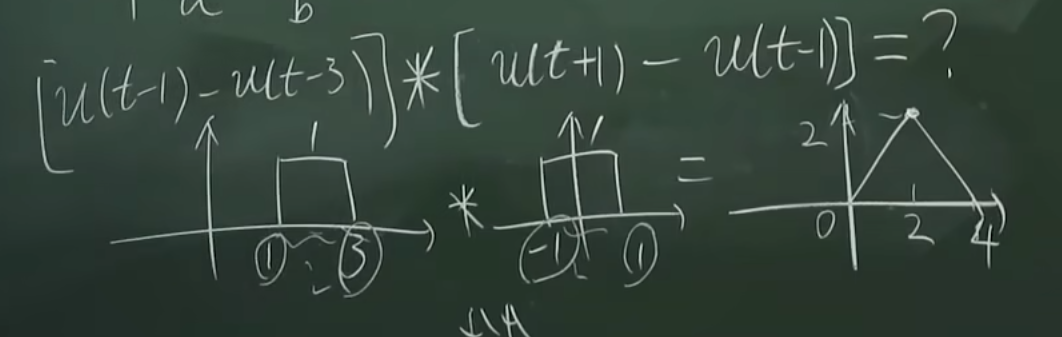 a b
[u(t-1)-u(t-3)]*[u(t+1)-u(t-1)]=?
1 1 2
* =
1 3 -1 1 0 2 4